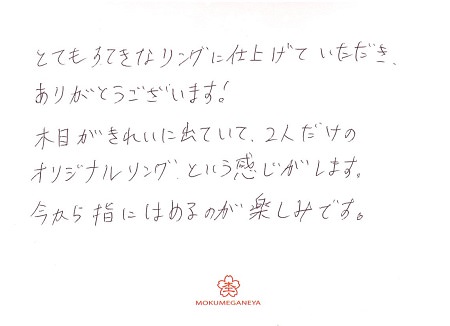 とてもすてきなリングに仕上げていただき、
ありがとうございます!
木目がきれいに出ていて、2人だけの
オリジナルリングという感じがします。
今から指にはめるのが楽しみです。
MOKUMEGANEYA